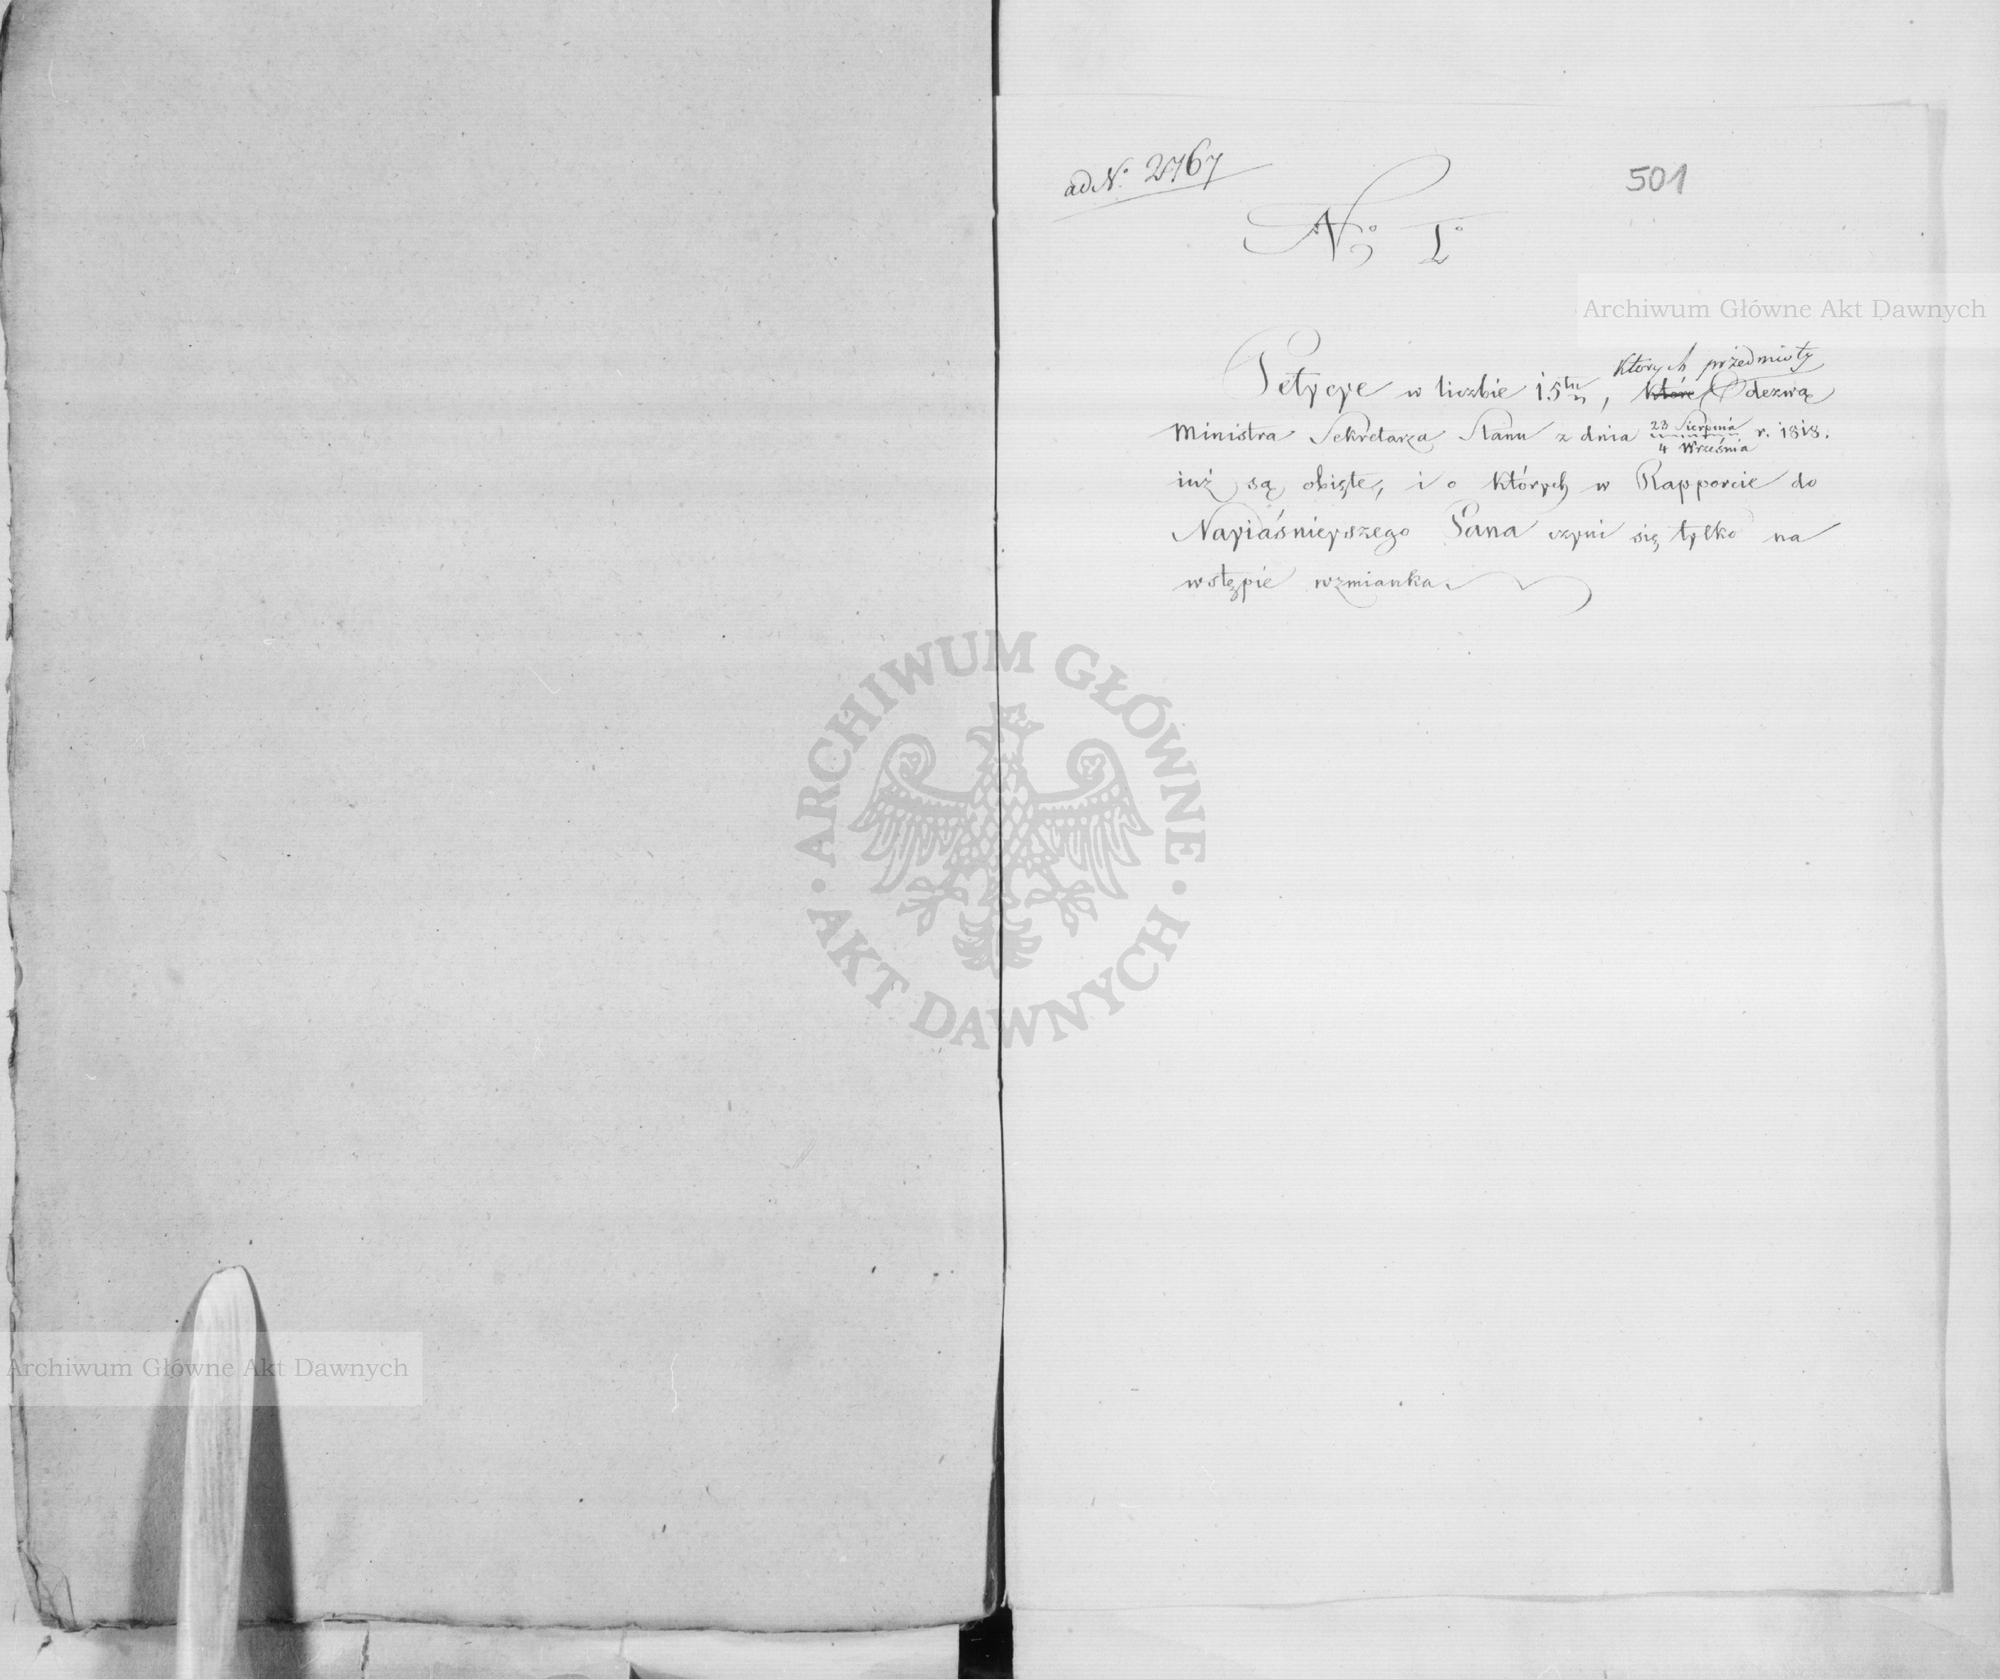 ad N.º 2767
501
N.º I.º
Archiwum Główne Akt Dawnych
których przedmioty
Petycye w liczbie 15tu, które Odezwą
Ministra Sekretarza Stanu z dnia 23 Sierpnia / 4 Września r. 1818.
iuż są obięte, i o których w Rapporcie do
Nayiaśnieyszego Pana czyni się tylko na
wstępie wzmianka.
ARCHIWUM GŁÓWNE
AKT DAWNYCH
Archiwum Główne Akt Dawnych